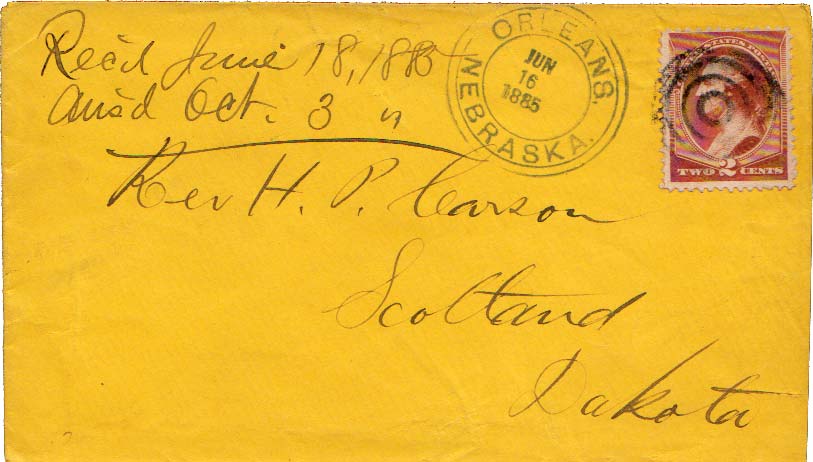 Rec'd June 18, 1885
Ans'd Oct. 3 "
ORLEANS, NEBRASKA.
JUN
16
1885
UNITED STATES POSTAGE
TWO 2 CENTS
Rev H. P. Carson
Scotland
Dakota